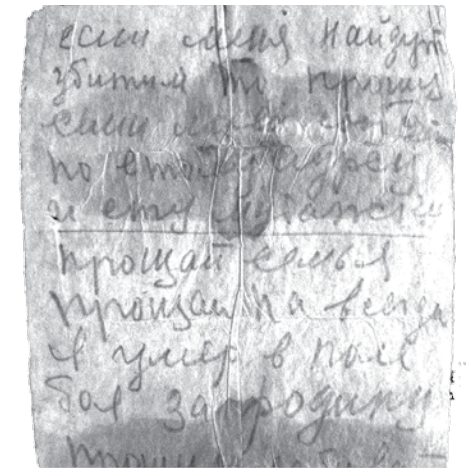 если меня найдут
убитым то прошу
если
по етому адресу
и ету
прощай семья
прощай на всегда
я умер в поле
боя за родину
прошу